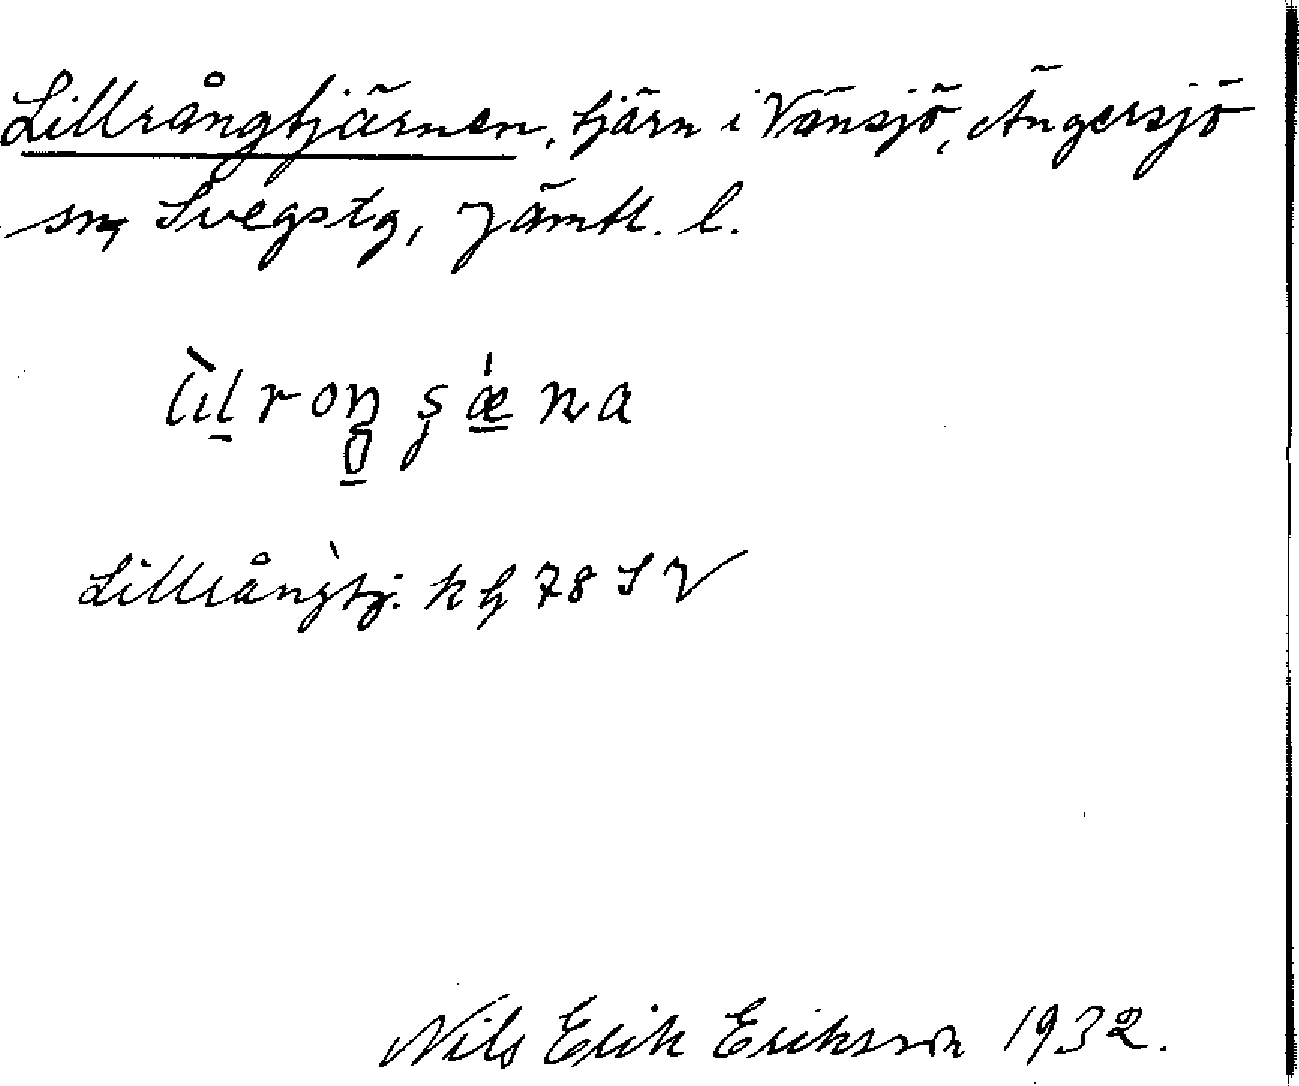 Lillrångtjärnen, tjärn i Vänsjö, Ängersjö
sn, Svegstg, Jämtl. l.
Lillrångtj. kf 78 SV
Nils Erik Eriksson 1932.